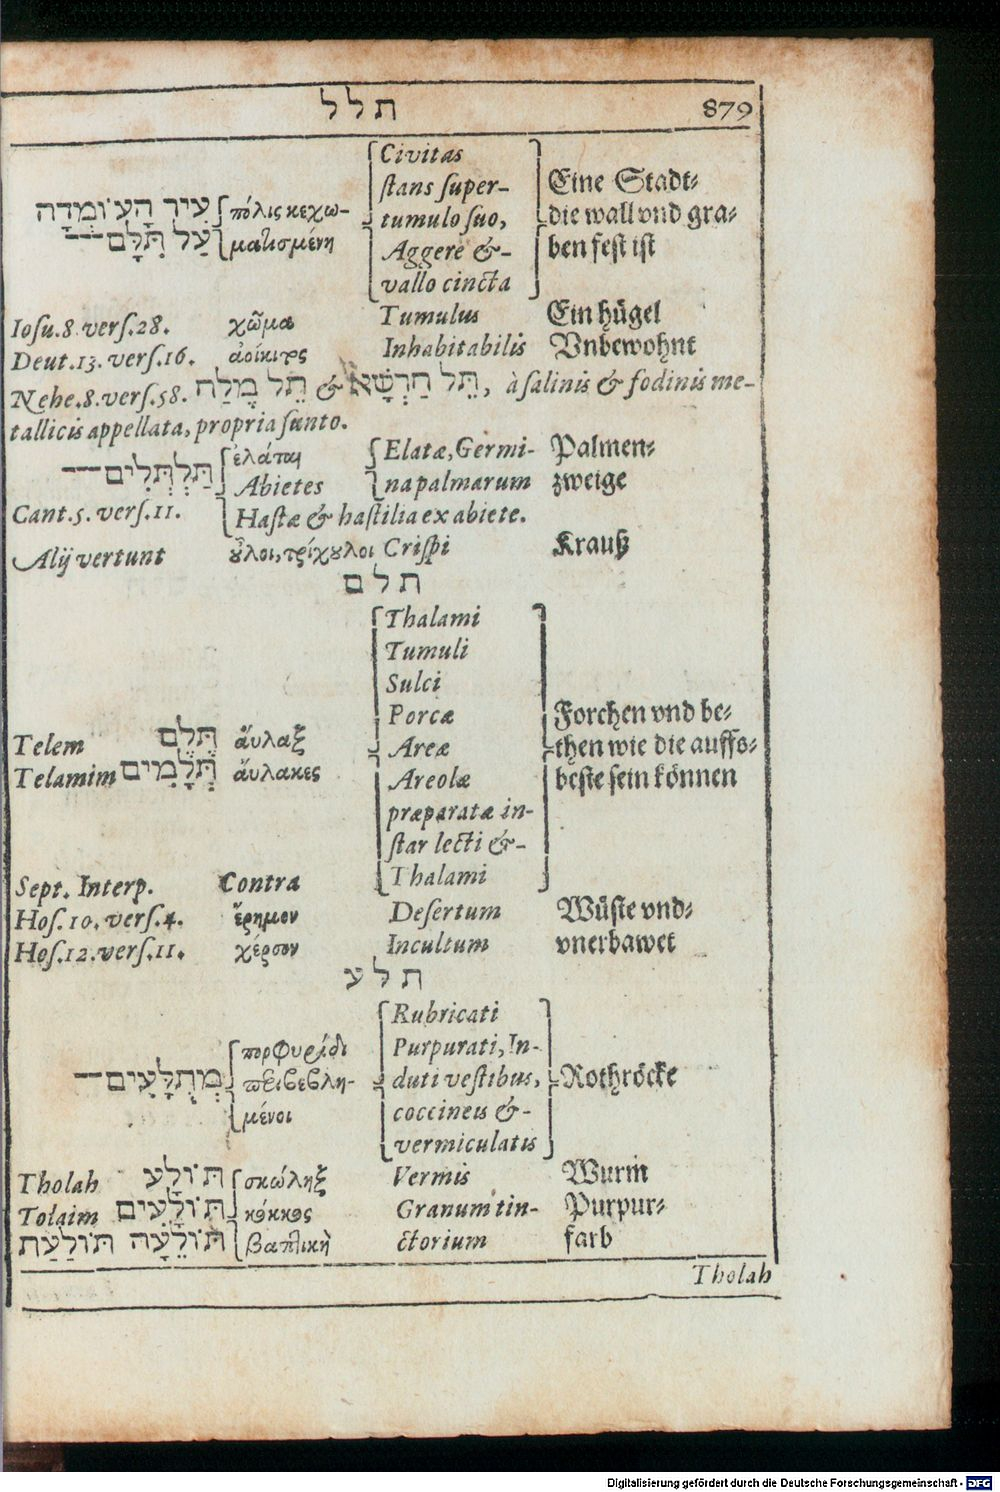 תלל 879
Civitas
stans super- Eine Stadt⸗
עִיר הָעוֹמְדָה πόλις κεχω- tumulo suo, die wall vnd gra⸗
עַל תִּלָּם ματισμένη Aggere &- ben fest ist
vallo cincta
Iosu.8.vers.28. χῶμα Tumulus Ein hügel
Deut.13.vers.16. ἀοίκητος Inhabitabilis Vnbewohnt
Nehe.8.vers.58. תֵּל מֶלַח & תֵּל חַרְשָׁא, à salinis & fodinis me-
tallicis appellata, propria sunto.
תַּלְתְּלִים ἐλάται Elatæ, Germi- Palmen⸗
Abietes na palmarum zweige
Cant.5.vers.11. Hastæ & hastilia ex abiete.
Alij vertunt οὖλοι, τρίχουλοι Crispi Krauß
תלם
Thalami
Tumuli
Sulci
Porcæ Forchen vnd be⸗
Telem תֶּלֶם ἄυλαξ Areæ then wie die auffs⸗
Telamim תְּלָמִים ἄυλακες Areolæ beste sein können
præparatæ in-
star lecti &-
Thalami
Sept. Interp. Contra
Hos.10.vers.4. ἔρημον Desertum Wüste vnd⸗
Hos.12.vers.11. χέρσον Incultum vnerbawet
תלע
Rubricati
πορφυρίδι Purpurati, In-
מְתֻלָּעִים περιβεβλη- duti vestibus, Rothröcke
μένοι coccineis &-
vermiculatis
Tholah תּוֹלָע σκώληξ Vermis Wurm
Tolaim תּוֹלָעִים κόκκος Granum tin- Purpur⸗
תּוֹלֵעָה תּוֹלַעַת βαπτικὴ ctorium farb
Tholah
Digitalisierung gefördert durch die Deutsche Forschungsgemeinschaft - DFG